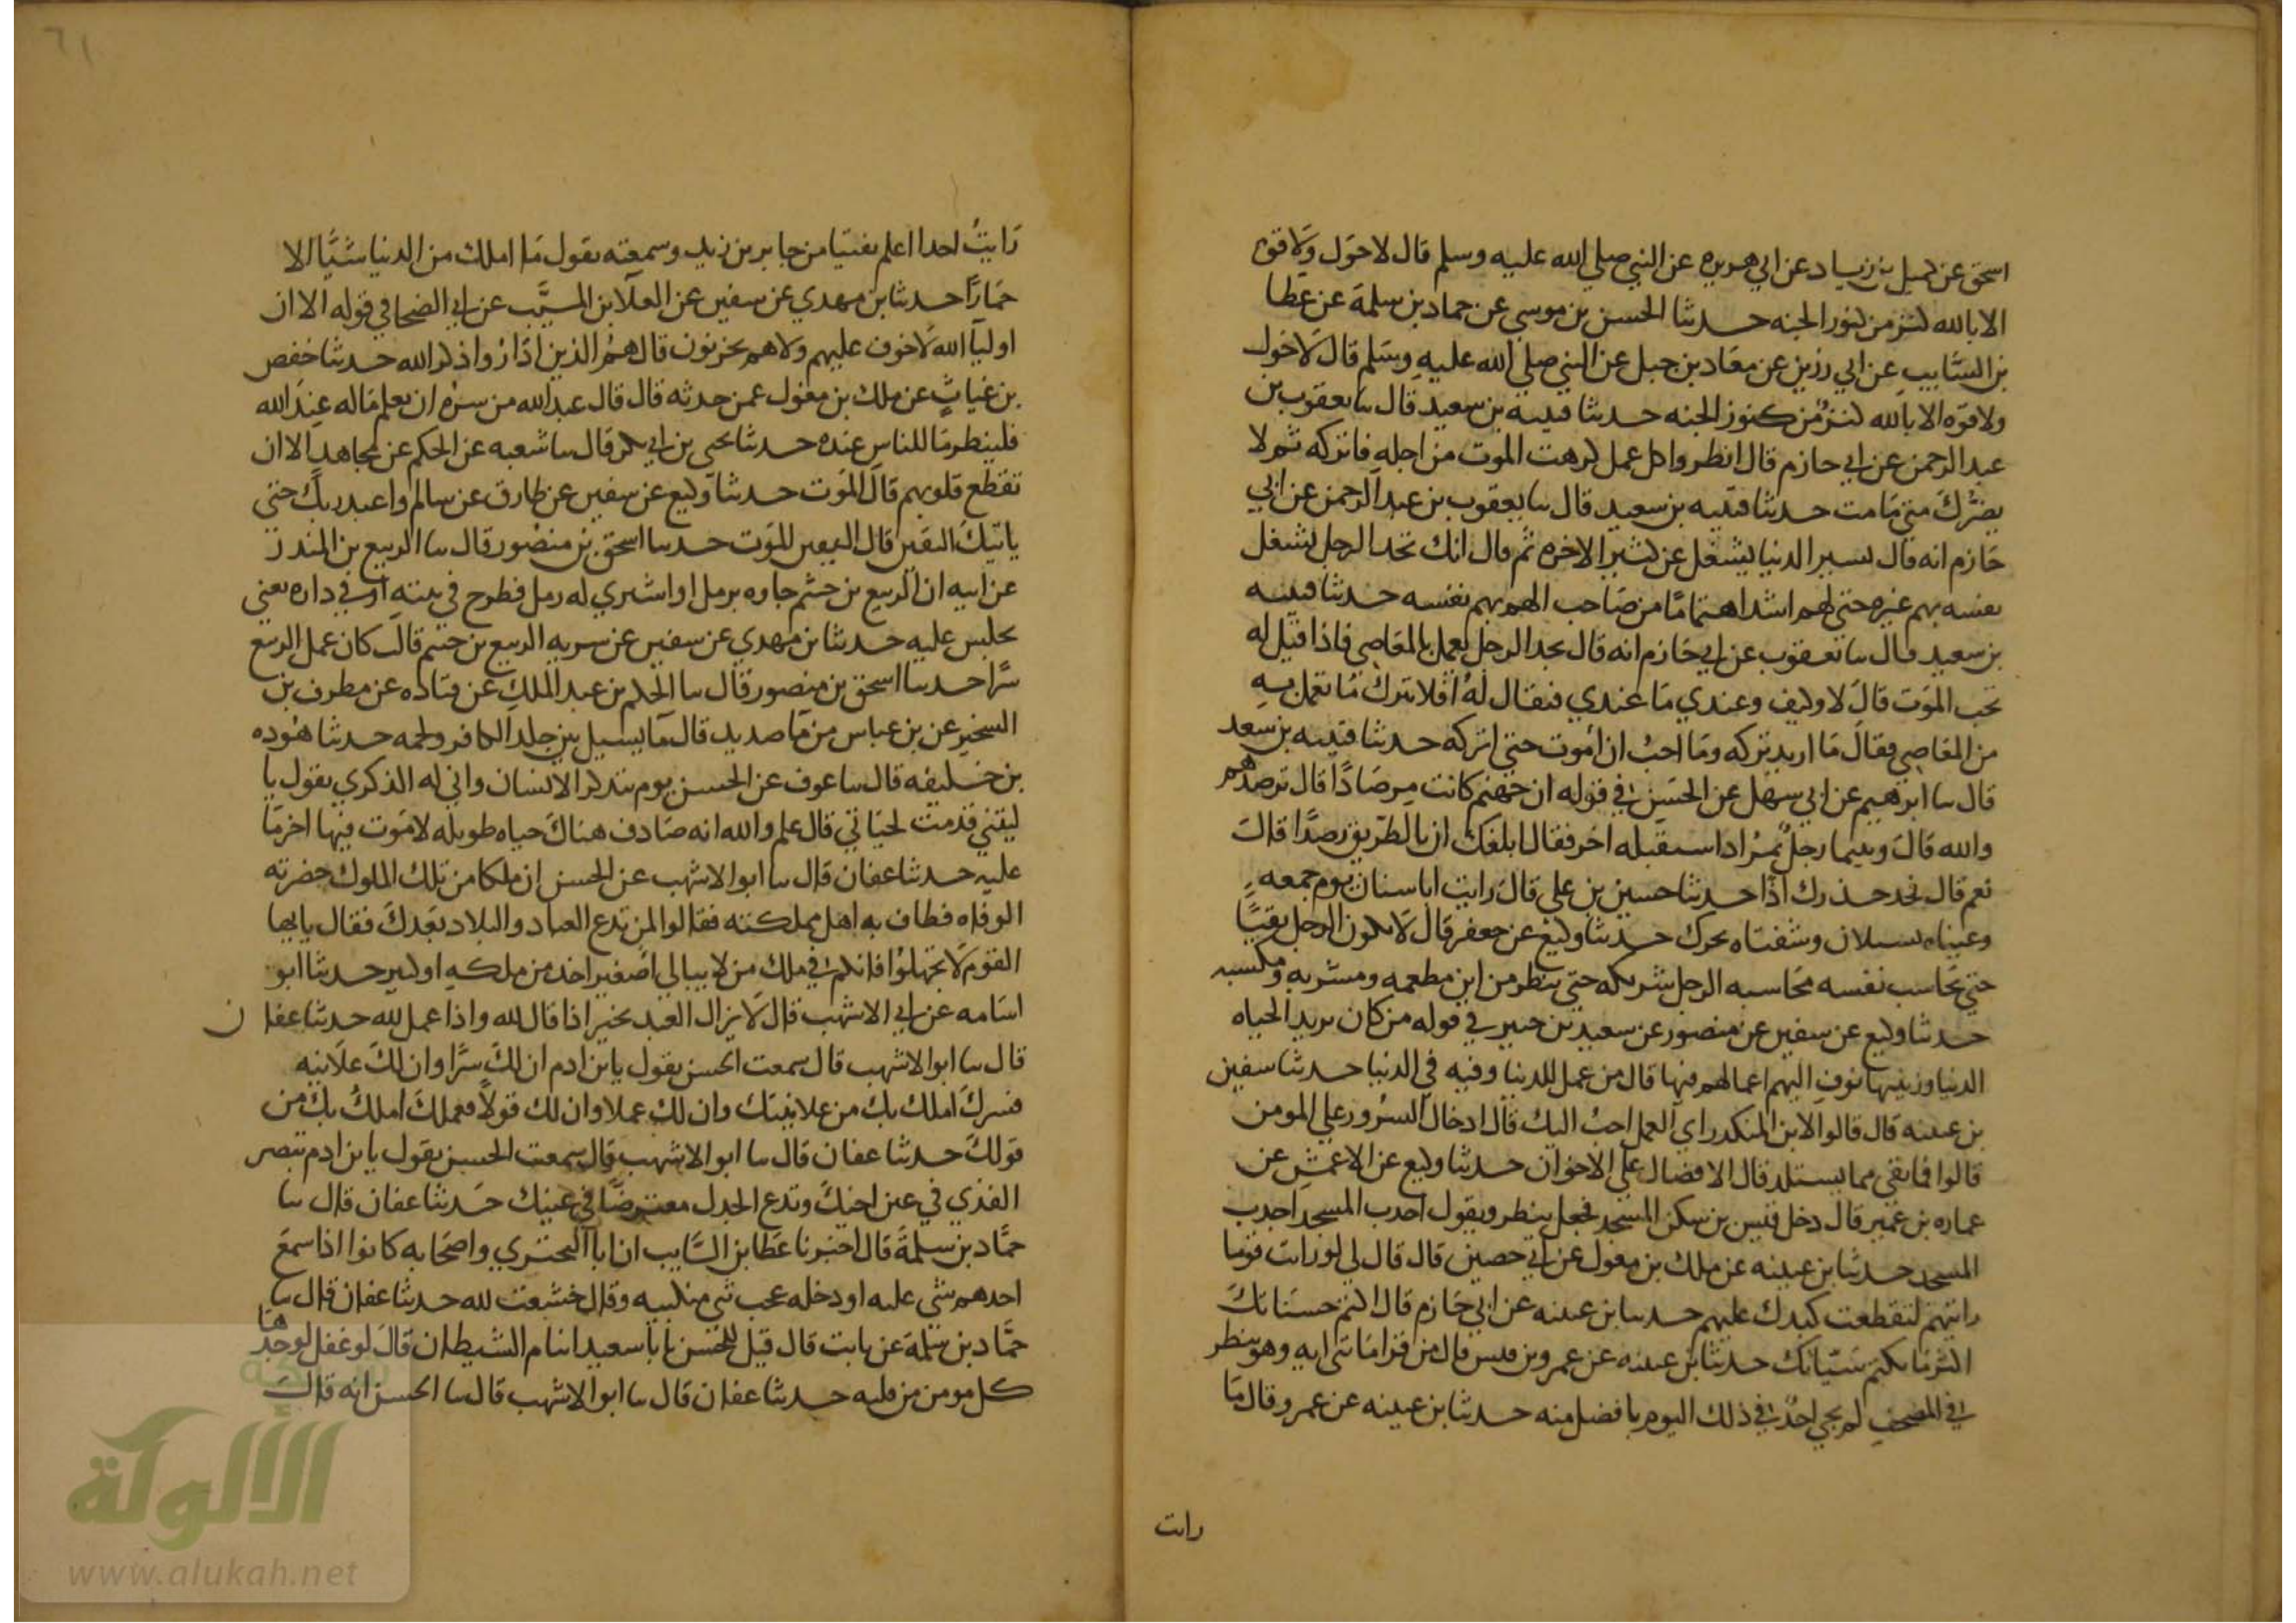 اسحق عن كميل بن زياد عن ابي هريره عن النبي صلي الله عليه وسلم قال لا حول ولا قوه
الا بالله كنز من كنوز الجنه حدثنا الحسن بن موسي عن حماد بن سلمة عن عطا
بن السايب عن ابي رزين عن معاد بن جبل عن النبي صلي الله عليه وسلم قال لا حول
ولا قوه الا بالله كنز من كنوز الجنه حدثنا قتيبه بن سعيد قال سا يعقوب بن
عبد الرحمن عن ابي حازم قال انظر وا كل عمل كرهت الموت من اجله فاتركه ثم لا
يضرك متي ما مت حدثنا قتيبه بن سعيد قال سا يعقوب بن عبد الرحمن عن ابي
حازم انه قال يسير الدنيا يشغل عن كثير الاخره ثم قال انك تجد الرجل يشغل
نفسه بهم غيره حتي لهو اشد اهتماما من صاحب الهم بهم نفسه حدثنا قتيبه
بن سعيد قال سا يعقوب عن ابي حازم انه قال تجد الرجل يعمل بالمعاصي فاذا قيل له
تحب الموت قال لا وكيف وعندي ما عندي فيقال له افلا تترك ما تعمل به
من المعاصي فقال ما اريد تركه وما احب ان اموت حتي اتركه حدثنا قتيبه بن سعيد
قال سا ابرهيم عن ابي سهل عن الحسن في قوله ان جهنم كانت مرصادا قال ترصدهم
والله قال وبينما رجل يمر اذ استقبله اخر فقال ابلغك ان بالطريق رصدا قال
نعم قال فخد حذرك اذا حدثنا حسين بن علي قال رايت ابا سنان يوم جمعه
وعيناه تسيلان وشفتاه تحرك حدثنا وكيع عن جعفر قال لا يكون الرجل تقيا
حتي يحاسب نفسه محاسبه الرجل شريكه حتي ينظر من اين مطعمه ومشربه وملبسه
حدثنا وكيع عن سفين عن منصور عن سعيد بن جبير في قوله من كان يريد الحياه
الدنيا وزينتها نوف اليهم اعمالهم فيها قال من عمل للدنيا وفيه في الدنيا حدثنا سفين
بن عيينه قال قالوا لابن المنكدر اي العمل احب اليك قال ادخال السرور علي المومن
قالوا فما بقي مما يستلد قال الافضال علي الاخوان حدثنا وكيع عن الاعمش عن
عماره بن عمير قال دخل قيس بن سكن المسجد فجعل ينظر ويقول اجدب المسجد اجدب
المسجد حدثنا بن عيينه عن ملك بن مغول عن ابي حصين قال قال لي لو رايت قوما
رايتهم لتقطعت كبدك عليهم حدثنا بن عيينه عن ابي حازم قال اكتم حسناتك
اكثر مما تكتم سيئاتك حدثنا بن عيينه عن عمرو بن قيس قال من قرا مائتي ايه وهو ينظر
في المصحف لم يجي احد في ذلك اليوم بافضل منه حدثنا بن عيينه عن عمرو قال ما
رايت
٦١
رايت احدا اعلم بفتيا من جابر بن زيد وسمعته يقول ما املك من الدنيا شيا الا
حمارا حدثنا بن مهدي عن سفين عن العلا بن المسيب عن ابي الضحا في قوله الا ان
اوليا الله لا خوف عليهم ولا هم يحزنون قال هم الذين اذا رؤا ذكر الله حدثنا حفص
بن غياث عن ملك بن مغول عمن حدثه قال قال عبد الله من سره ان يعلم ما له عند الله
فلينظر ما للناس عنده حدثنا يحيي بن ابي بكر قال سا شعبه عن الحكم عن مجاهد الا ان
تقطع قلوبهم قال الموت حدثنا وكيع عن سفين عن طارق عن سالم واعبد ربك حتي
ياتيك اليقين قال اليقين الموت حدثنا اسحق بن منصور قال سا الربيع بن المندر
عن ابيه ان الربيع بن خثيم جاوه برمل او اشتري له رمل فطرح في بيته او في داره يعني
يجلس عليه حدثنا بن مهدي عن سفين عن سريه الربيع بن خثيم قال كان عمل الربيع
سرا حدثنا اسحق بن منصور قال سا الحكم بن عبد الملك عن قتاده عن مطرف بن
الشخير عن بن عباس من ما صديد قال ما يسيل بين جلد الكافر ولحمه حدثنا هوده
بن خليفه قال سا عوف عن الحسن يوم يتذكر الانسان واني له الذكري يقول يا
ليتني قدمت لحياتي قال علم والله انه صادف هناك حياه طويله لا موت فيها اخر ما
عليه حدثنا عفان قال سا ابو الاشهب عن الحسن ان ملكا من تلك الملوك حضرته
الوفاه فطاف به اهل مملكته فقالوا لمن تدع العباد والبلاد بعدك فقال يا ايها
القوم لا تجهلوا فانكم في ملك من لا يبالي اصغير اخد من ملكه او كبير حدثنا ابو
اسامه عن ابي الاشهب قال لا يزال العبد بخير اذا قال لله واذا عمل لله حدثنا عفان
قال سا ابو الاشهب قال سمعت الحسن يقول يا بن ادم ان لك سرا وان لك علانيه
فسرك املك بك من علانيتك وان لك عملا وان لك قولا فعملك املك بك من
قولك حدثنا عفان قال سا ابو الاشهب قال سمعت الحسن يقول يا بن ادم تبصر
القذي في عين اخيك وتدع الجدل معترضا في عينك حدثنا عفان قال سا
حماد بن سلمة قال اخبرنا عطا بن السايب ان ابا البختري واصحابه كانوا اذا سمع
احدهم يثني عليه او دخله عجب ثني منكبيه وقال خشعت لله حدثنا عفان قال سا
حماد بن سلمة عن ثابت قال قيل للحسن يا با سعيد اينام الشيطان قال لو غفل لوجدها
كل مومن من قلبه حدثنا عفان قال سا ابو الاشهب قال سا الحسن انه قال
شبكة
الألوكة
www.alukah.net